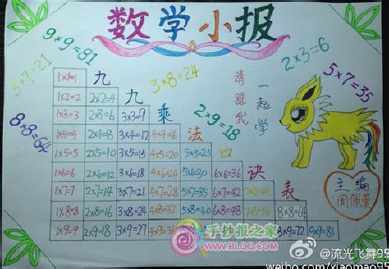 数学小报
9×9=81
3×7=21
8×8=64
3×8=24
2×9=18
2×3=6
5×7=35
请跟我
一起学
九九乘法口诀表
1×1=1
1×2=2 2×2=4
1×3=3 2×3=6 3×3=9
1×4=4 2×4=8 3×4=12 4×4=16
1×5=5 2×5=10 3×5=15 4×5=20 5×5=25
1×6=6 2×6=12 3×6=18 4×6=24 5×6=30 6×6=36
1×7=7 2×7=14 3×7=21 4×7=28 5×7=35 6×7=42
1×8=8 2×8=16 3×8=24 4×8=32 5×8=40 6×8=48 8×8=64
1×9=9 2×9=18 3×9=27 8×9=72 9×9=81
主编
手抄报之家
@流光飞舞95
weibo.com/xiaomao95